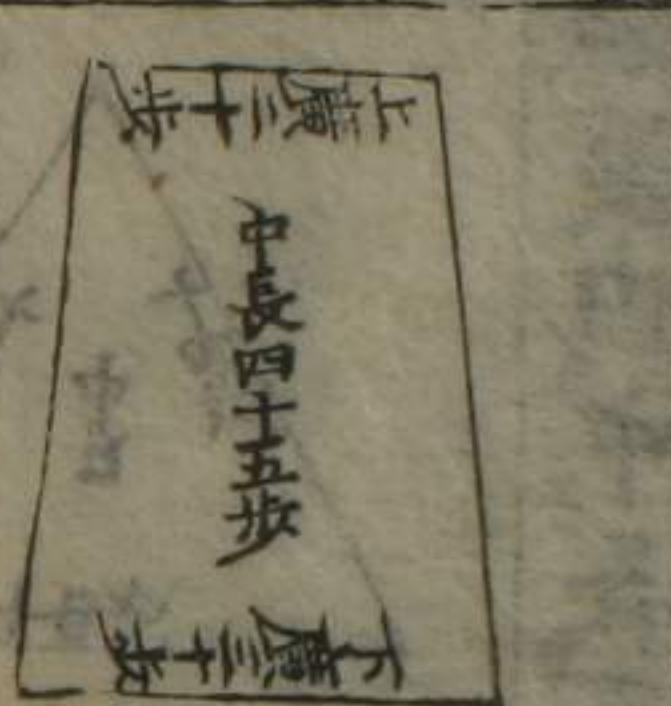 上廣二十步
中長四十五步
下廣三十步